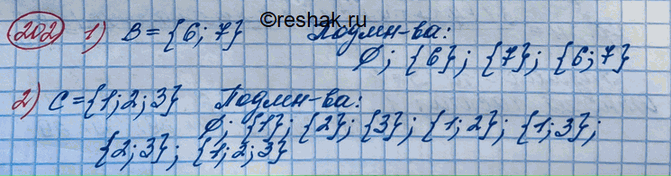 ©reshak.ru
202 1) B = {6; 7} Подмн-ва:
∅; {6}; {7}; {6; 7}
2) C = {1; 2; 3} Подмн-ва:
∅; {1}; {2}; {3}; {1; 2}; {1; 3};
{2; 3}; {1; 2; 3}